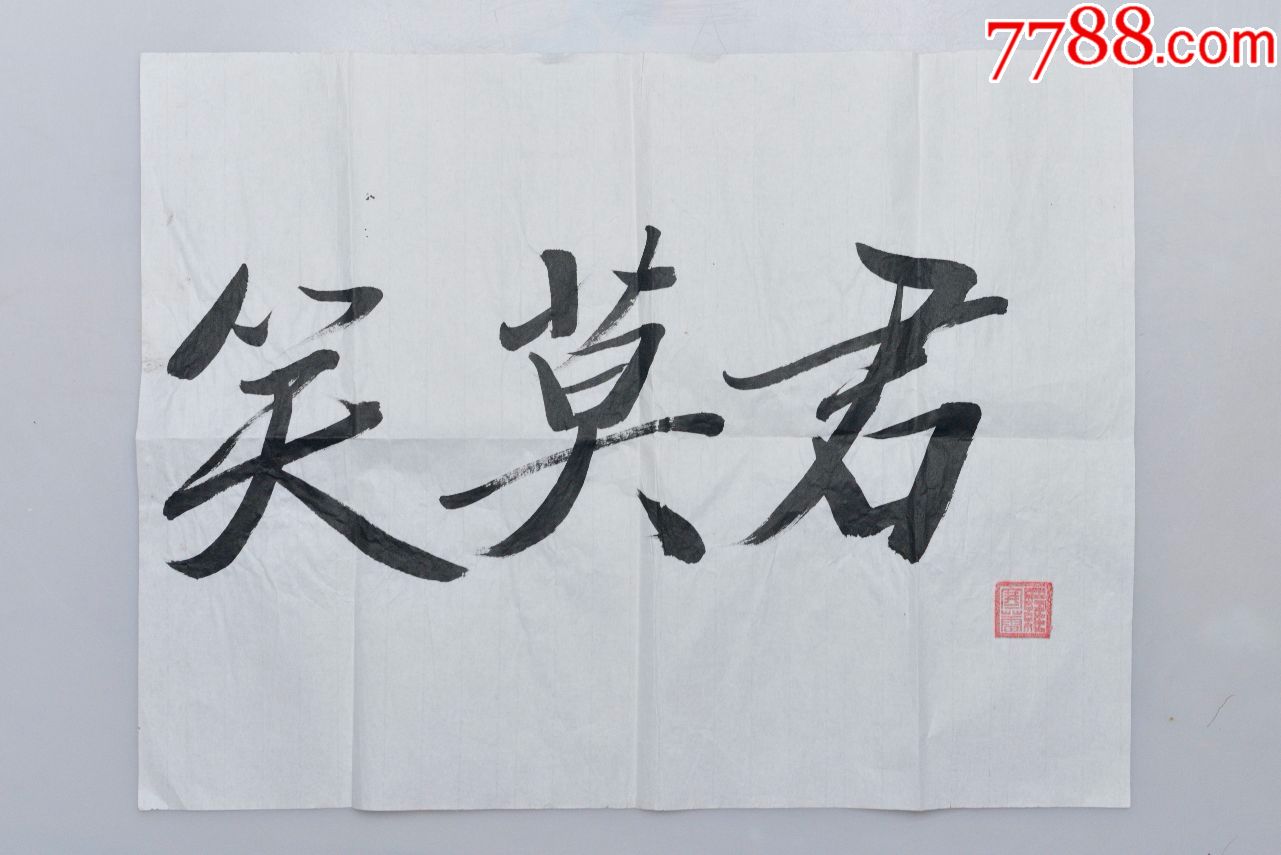 7788.com
君莫笑